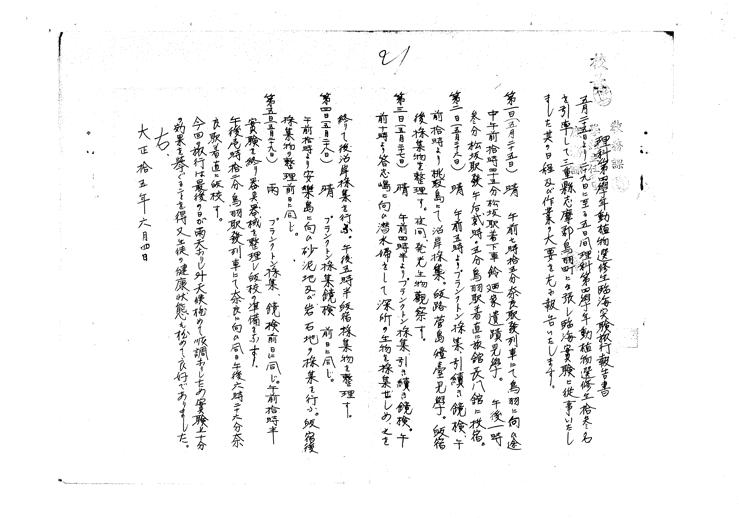 21
教務課
理科第四學年動植物選修生臨海実験旅行報告書
五月二五日より二九日に至る五日間理科第四學年動植物選修生拾参名
を引率して三重縣志摩郡鳥羽町に出張し臨海実験に従事いたし
ました其の日程及び作業の大要を左に報告いたします。
第一日(五月二十五日) 晴 午前七時拾五分奈良駅發列車にて鳥羽に向ふ途
中午前拾時四十五分松坂駅着下車 鈴廼家遺蹟見學。 午後一時
参分松坂駅發 午后貳時五分鳥羽駅着直に旅館長八館に投宿。
第二日(五月二六日) 晴 午前五時よりプランクトン採集引續き鏡検、午
前拾時より桃取島にて沿岸採集。 皈路菅島燈臺見學。 皈宿
後採集物を整理す。夜间、発光生物観察す。
第三日(五月二十七日) 晴 午前四時半よりプランクトン採集、引き續き鏡検。午
前十時より答志嶋に向ひ潜水婦をして深所の生物を採集せしめ、之を
終りて後沿岸採集を行ふ。午後五時半皈宿採集物を整理す。
第四日(五月二十八日) 晴 プランクトン採集鏡検 前日に同じ。
午前拾時より安樂島に向ひ砂泥地及び岩石地の採集を行ふ、皈宿後
採集物の整理前日に同じ。
第五日(五月二十九日) 雨 プランクトン採集、鏡検前日に同じ。午前拾時半
実験を終り器具器械を整理し皈校の準備をなす。
午後 時拾 分鳥羽駅發列車にて奈良に向ひ同日午後六時二十六分奈
良駅着直に皈校す。
今回旅行は最後の日が雨天なりし外天候極めて順調なりしため実験上十分
の効果を挙ぐることを得又生徒の健康状態も極めて良好でありました。
右、
大正拾五年六月四日